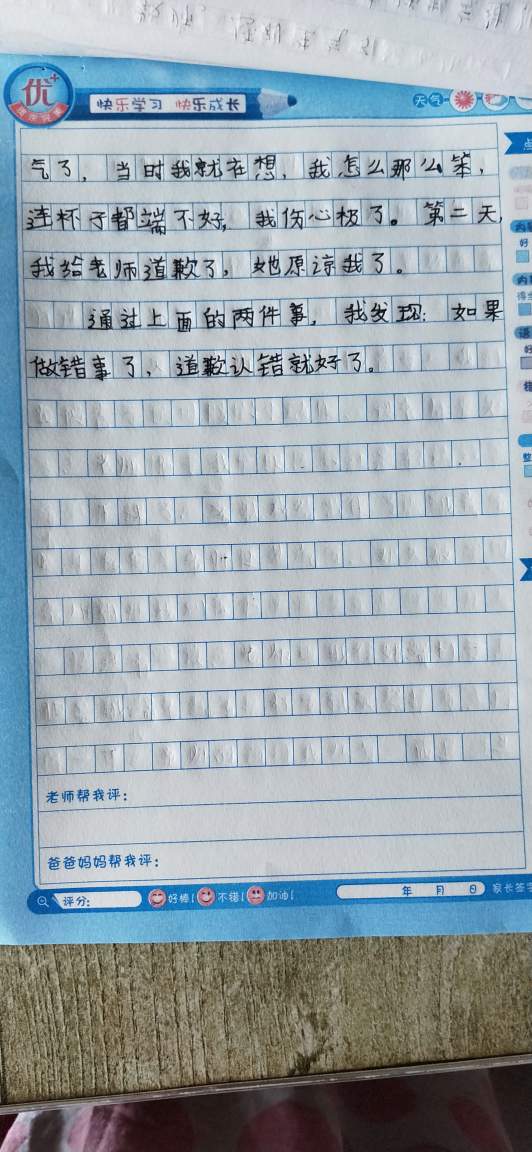 优+
快乐学习 快乐成长
天气
气了,当时我就在想,我怎么那么笨,
连杯子都端不好,我伤心极了。第二天,
我给老师道歉了,她原谅我了。
通过上面的两件事,我发现:如果
做错事了、道歉认错就好了。
老师帮我评:
爸爸妈妈帮我评:
评分: 好棒! 不错! 加油! 年 月 日 家长签字